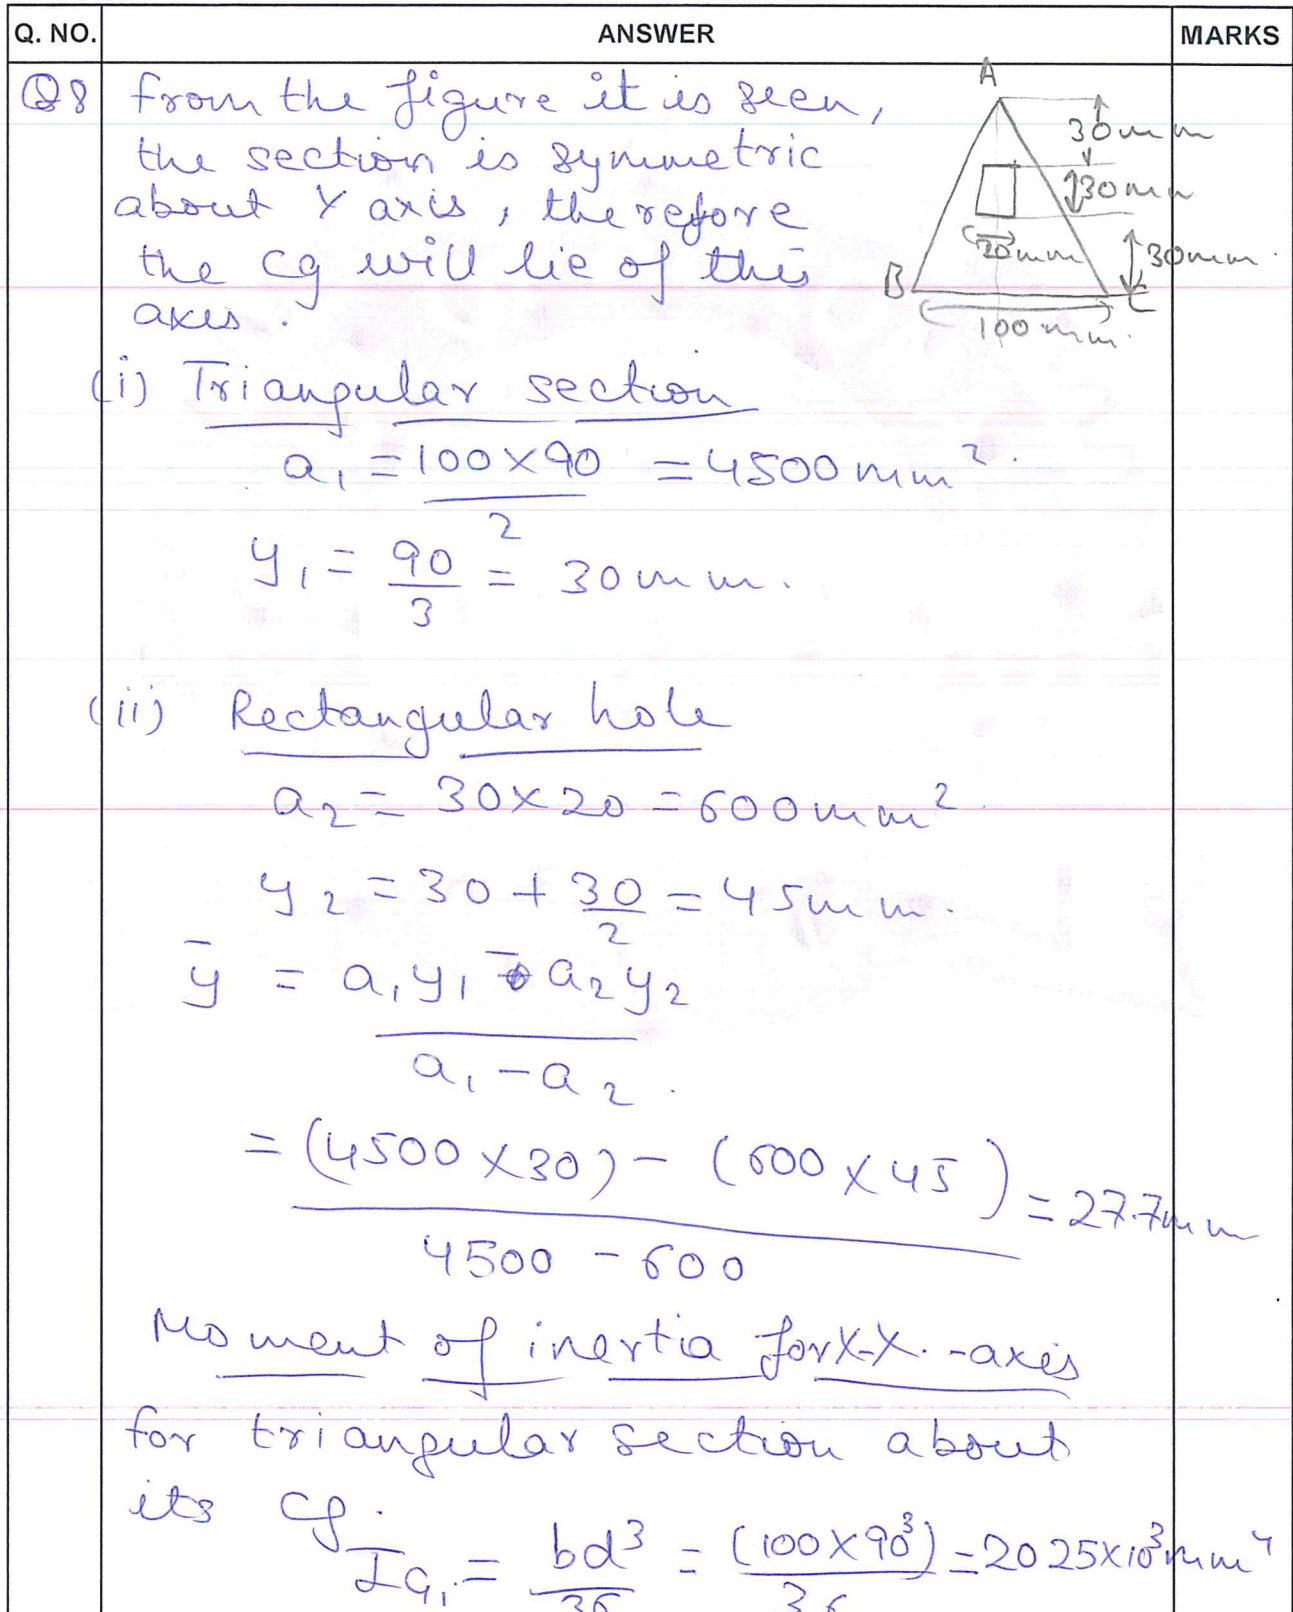 Q. NO. ANSWER MARKS
Q8 from the figure it is seen,
the section is symmetric
about Y axis, therefore
the cg will lie of this
axis.
A
30mm
30mm
20mm
30mm.
B C
100mm.
(i) Triangular section
a1 = 100×90/2 = 4500mm².
y1 = 90/3 = 30mm.
(ii) Rectangular hole
a2 = 30×20 = 600mm².
y2 = 30 + 30/2 = 45mm.
ȳ = a1y1 - a2y2
a1 - a2.
= (4500 × 30) - (600 × 45) = 27.7mm
4500 - 600
Moment of inertia for X-X.-axis
for triangular section about
its cg.
IG1. = bd³/36 = (100×90³)/36 = 2025×10³mm⁴